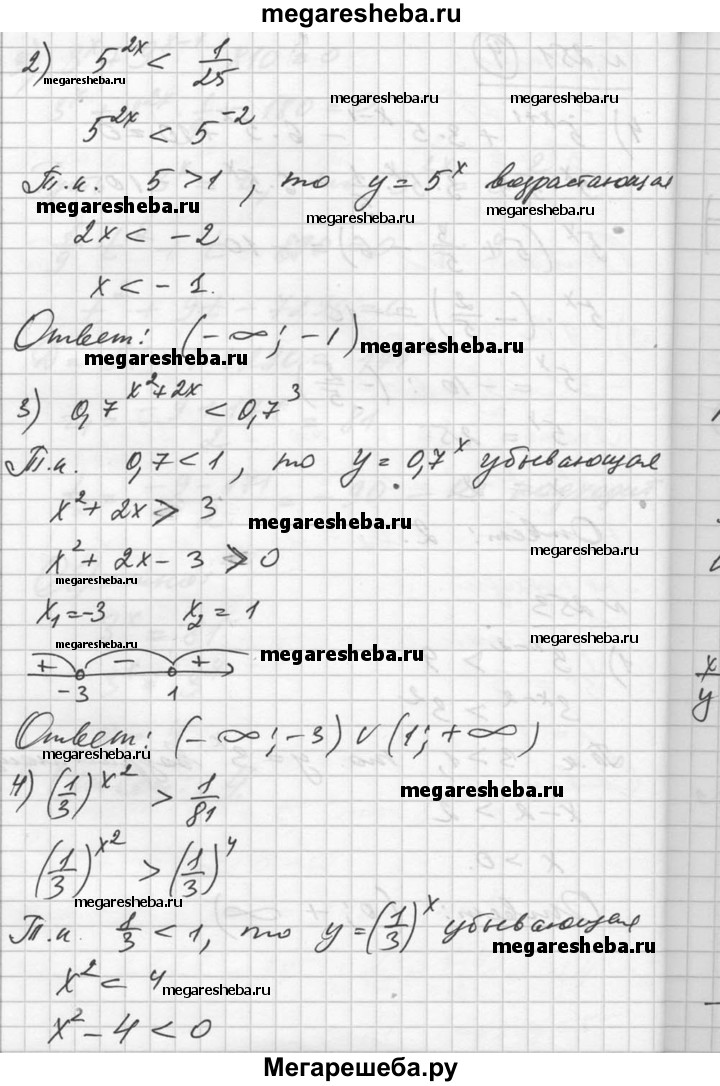 megaresheba.ru
2) 5^{2x} < 1/25
megaresheba.ru
megaresheba.ru megaresheba.ru
5^{2x} < 5^{-2}
Т.к. 5 > 1, то y = 5^x возрастающая
megaresheba.ru megaresheba.ru megaresheba.ru
2x < -2
x < -1.
Ответ: (-∞; -1)
megaresheba.ru megaresheba.ru
3) 0,7^{x²+2x} < 0,7^3
Т.к. 0,7 < 1, то y = 0,7^x убывающая
x² + 2x > 3
megaresheba.ru
x² + 2x - 3 > 0
megaresheba.ru megaresheba.ru
x₁ = -3 x₂ = 1
megaresheba.ru megaresheba.ru megaresheba.ru
+ - +
-3 1
Ответ: (-∞; -3) ∪ (1; +∞)
megaresheba.ru
4) (1/3)^{x²} > 1/81
megaresheba.ru
(1/3)^{x²} > (1/3)^4
megaresheba.ru
Т.к. 1/3 < 1, то y = (1/3)^x убывающая
megaresheba.ru
x² < 4
megaresheba.ru
x² - 4 < 0
x/y
Мегарешеба.ру